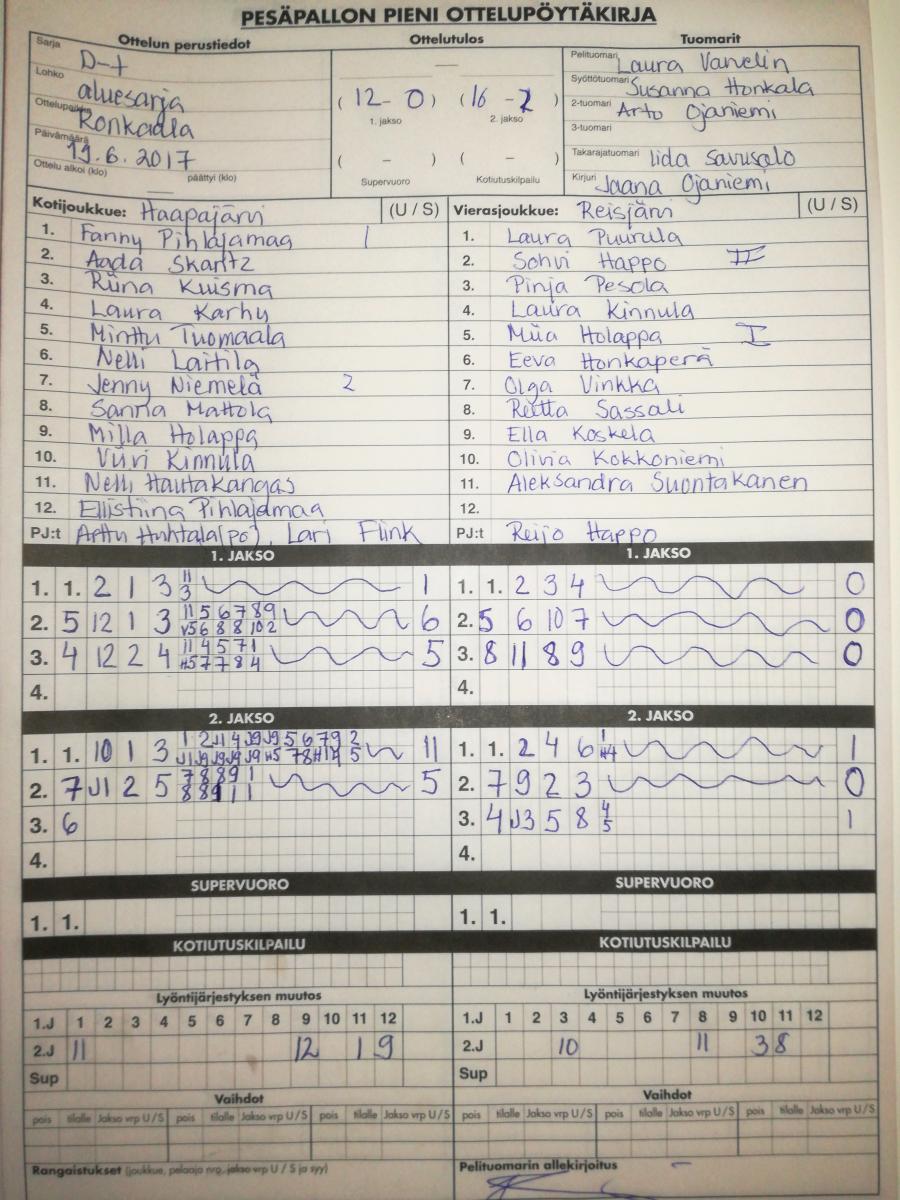 PESÄPALLON PIENI OTTELUPÖYTÄKIRJA
Ottelun perustiedot Ottelutulos Tuomarit
Sarja D-t
Lohko aluesarja
Ottelupaikka Ronkaala
Päivämäärä 19.6.2017
Ottelu alkoi (klo) päättyi (klo)
( 12 - 0 ) ( 16 - 2 )
1. jakso 2. jakso
( - ) ( - )
Supervuoro Kotiutuskilpailu
Pelituomari Laura Varvelin
Syöttötuomari Susanna Honkala
2-tuomari Arto Ojaniemi
3-tuomari
Takarajatuomari Iida Savusalo
Kirjuri Jaana Ojaniemi
Kotijoukkue: Haapajärvi (U / S) Vierasjoukkue: Reisjärvi (U / S)
1. Fanny Pihlajamaa 1 1. Laura Puurula
2. Aada Skantz 2. Sohvi Happo II
3. Riina Kuisma 3. Pinja Pesola
4. Laura Karhu 4. Laura Kinnula
5. Minttu Tuomaala 5. Miia Holappa I
6. Nelli Laitila 6. Eeva Honkaperä
7. Jenny Niemelä 2 7. Olga Vinkka
8. Sanna Mattola 8. Reetta Sassali
9. Milla Holappa 9. Ella Koskela
10. Viivi Kinnula 10. Olivia Kokkoniemi
11. Nelli Hautakangas 11. Aleksandra Suontakanen
12. Ellistiina Pihlajamaa 12.
PJ:t Arttu Huhtala(po), Lari Flink PJ:t Reijo Happo
1. JAKSO 1. JAKSO
1. 1. 2 1 3 11 3 1 1. 1. 2 3 4 0
2. 5 12 1 3 11 5 6 7 8 9 6 2. 5 6 10 7 0
v5 6 8 8 10 2
3. 4 12 2 4 11 4 5 7 1 5 3. 8 11 8 9 0
H5 7 7 8 4
4. 4.
2. JAKSO 2. JAKSO
1. 1. 10 1 3 1 2 J1 4 J9 J9 5 6 7 9 2 11 1. 1. 2 4 6 1 H4 1
J1 J9 J9 J9 J9 H5 7 8 H1 5
2. 7 J1 2 5 7 8 8 9 1 5 2. 7 9 2 3 0
8 8 9 1 1
3. 6 3. 4 J3 5 8 4 5 1
4. 4.
SUPERVUORO SUPERVUORO
1. 1. 1. 1.
KOTIUTUSKILPAILU KOTIUTUSKILPAILU
Lyöntijärjestyksen muutos Lyöntijärjestyksen muutos
1.J 1 2 3 4 5 6 7 8 9 10 11 12 1.J 1 2 3 4 5 6 7 8 9 10 11 12
2.J 11 12 1 9 2.J 10 11 3 8
Sup Sup
Vaihdot Vaihdot
pois tilalle Jakso vrp U / S pois tilalle Jakso vrp U / S pois tilalle Jakso vrp U / S pois tilalle Jakso vrp U / S pois tilalle Jakso vrp U / S pois tilalle Jakso vrp U / S
Rangaistukset (joukkue, pelaaja nro, jakso vrp U / S ja syy) Pelituomarin allekirjoitus